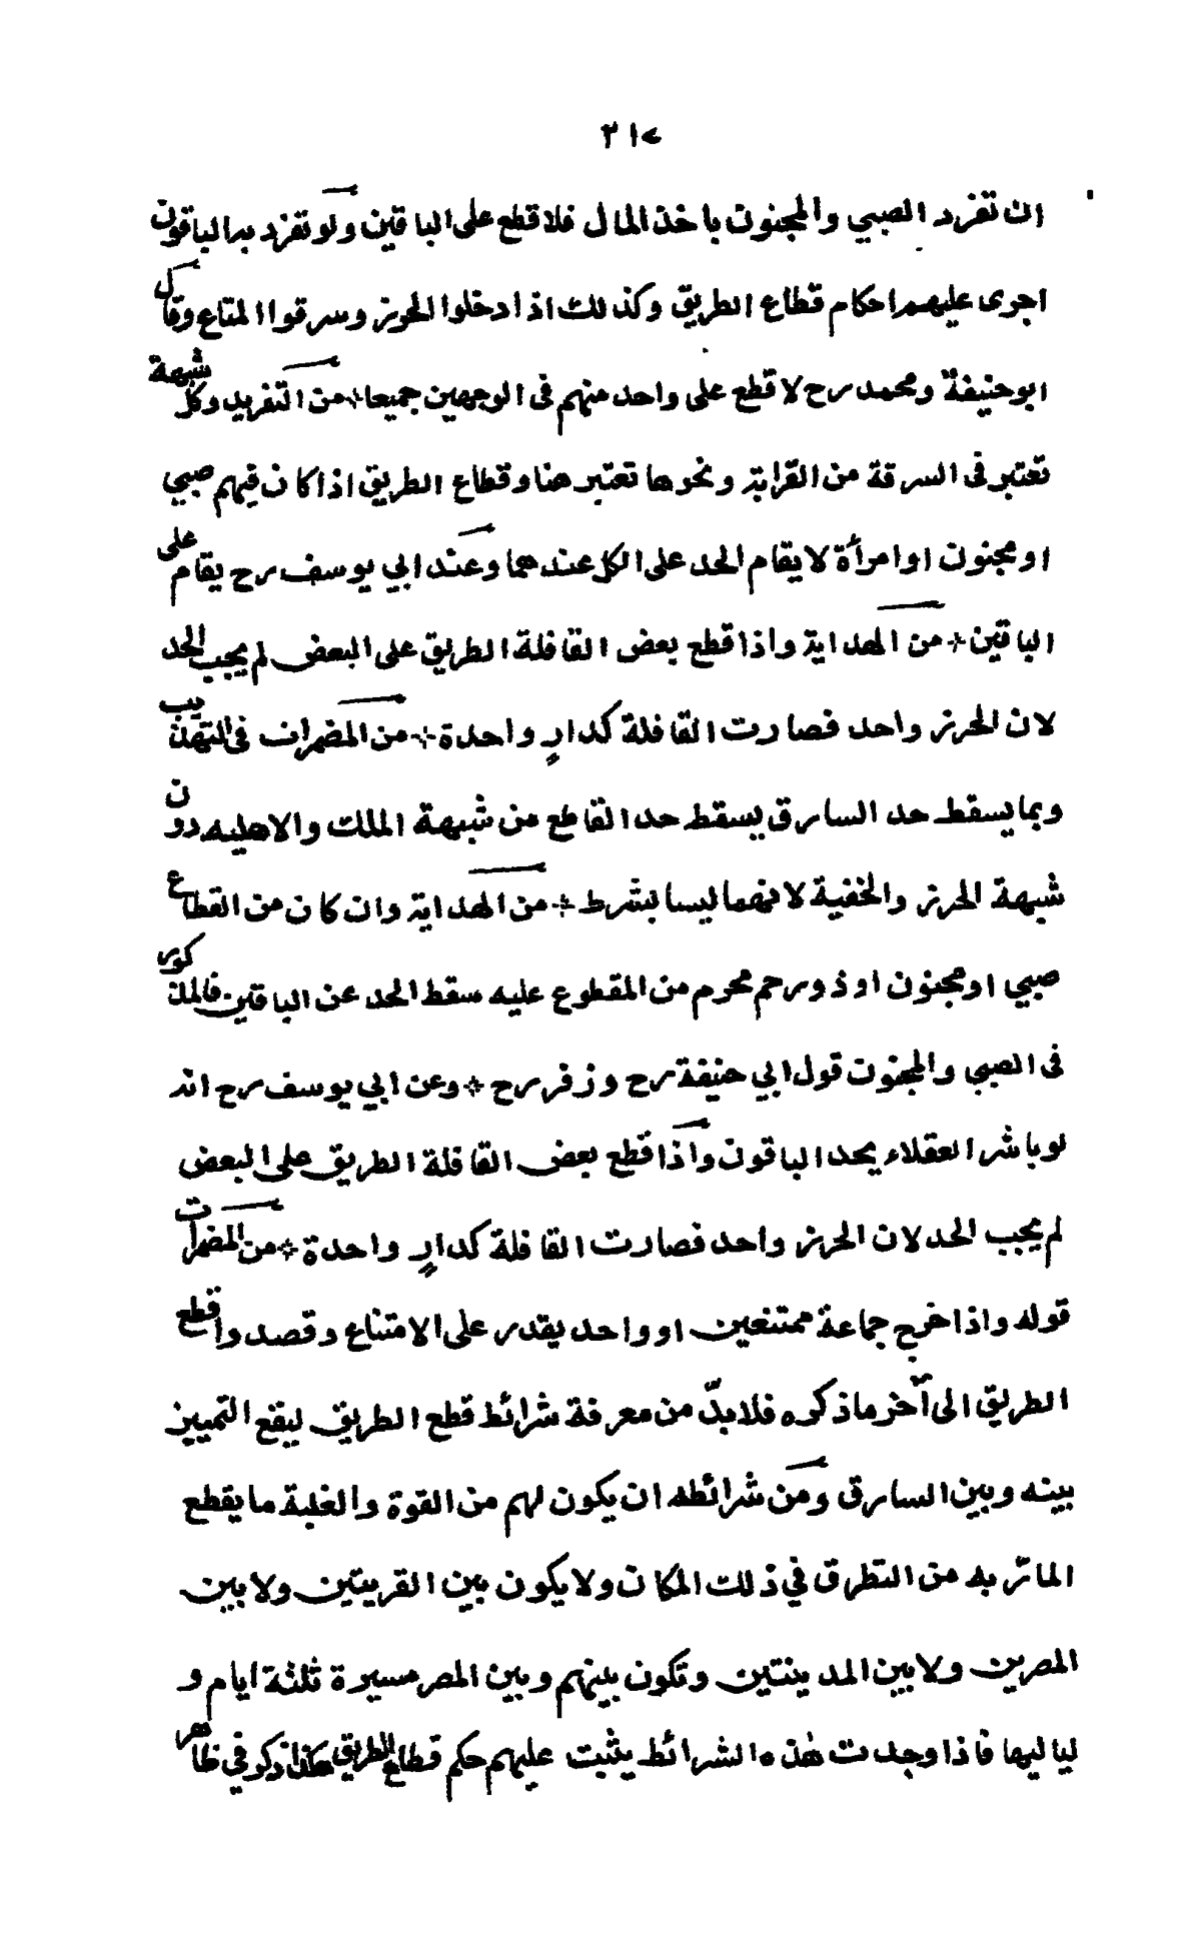 ٣١٧
ان تفرد الصبي والمجنون باخذ المال فلا قطع على الباقين ولو تفرد به الباقون
اجرى عليهم احكام قطاع الطريق وكذلك اذا دخلوا الحرز وسرقوا المتاع وقال
ابو حنيفة ومحمد رح لا قطع على واحد منهم فى الوجهين جميعا * من التفريد وكل شبهة
تعتبر فى السرقة من القرابة ونحوها تعتبر هنا وقطاع الطريق اذا كان فيهم صبي
او مجنون او امرأة لا يقام الحد على الكل عندهما وعند ابي يوسف رح يقام على
الباقين * من الهداية واذا قطع بعض القافلة الطريق على البعض لم يجب الحد
لان الحرز واحد فصارت القافلة كدارٍ واحدة * من المضمرات فى التهذيب
وبما يسقط حد السارق يسقط حد القاطع من شبهة الملك والاهليه دون
شبهة الحرز والخفية لانهما ليسا بشرط * من الهداية وان كان من القطاع
صبي او مجنون او ذو رحم محرم من المقطوع عليه سقط الحد عن الباقين فالمذكور
فى الصبي والمجنون قول ابي حنيفة رح وزفر رح * وعن ابي يوسف رح انه
لو باشر العقلاء يحد الباقون واذا قطع بعض القافلة الطريق على البعض
لم يجب الحد لان الحرز واحد فصارت القافلة كدارٍ واحدة * من المضمرات
قوله واذا خرج جماعة ممتنعين او واحد يقدر على الامتناع وقصدوا قطع
الطريق الى آخر ما ذكره فلا بدّ من معرفة شرائط قطع الطريق ليقع التمييز
بينه وبين السارق ومن شرائطه ان يكون لهم من القوة والغلبة ما يقطع
المائر به من التطرق في ذلك المكان ولا يكون بين القريتين ولا بين
المصرين ولا بين المدينتين وتكون بينهم وبين المصر مسيرة ثلثة ايام و
لياليها فاذا وجدت هذه الشرائط يثبت عليهم حكم قطاع الطريق هكذا ذكر في ظاهر